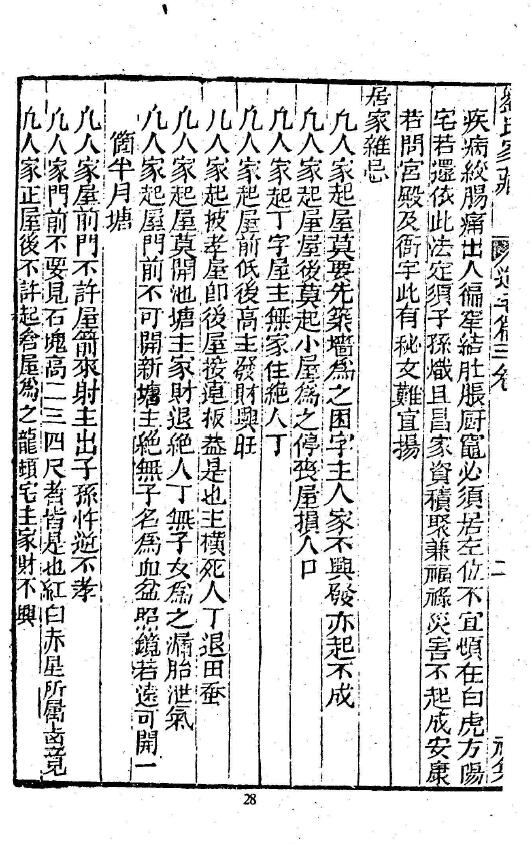 疾病絞腸痛出人徧窄結肚脹厨竈必須居左位不宜頓在白虎方陽
宅若還依此法定須子孫熾且昌家資積聚兼福祿災害不起成安康
若問宮殿及衙宇此有秘文難宜揚
居家雜忌
凢人家起屋莫要先築墻爲之困字主人家不興發亦起不成
凢人家起屋屋後莫起小屋爲之停喪屋損人口
凢人家起屋前低後高主發財興旺
凢人家起丁字屋主無家住絶人丁
凢人家起披孝屋卽後屋接連板葢是也主橫死人丁退田蚕
凢人家起屋莫開池塘主家財退絶人丁無子女爲之漏胎泄氣
凢人家起屋門前不可開新塘主絶無子名爲血盆照鏡若遠可開一
箇半月塘
凢人家屋前門不許屋箭來射主出子孫忤逆不孝
凢人家門前不要見石塊高二三四尺者皆是也紅白赤星所属
凢人家正屋後不許起倉屋爲之龍頓宅主家財不興
28